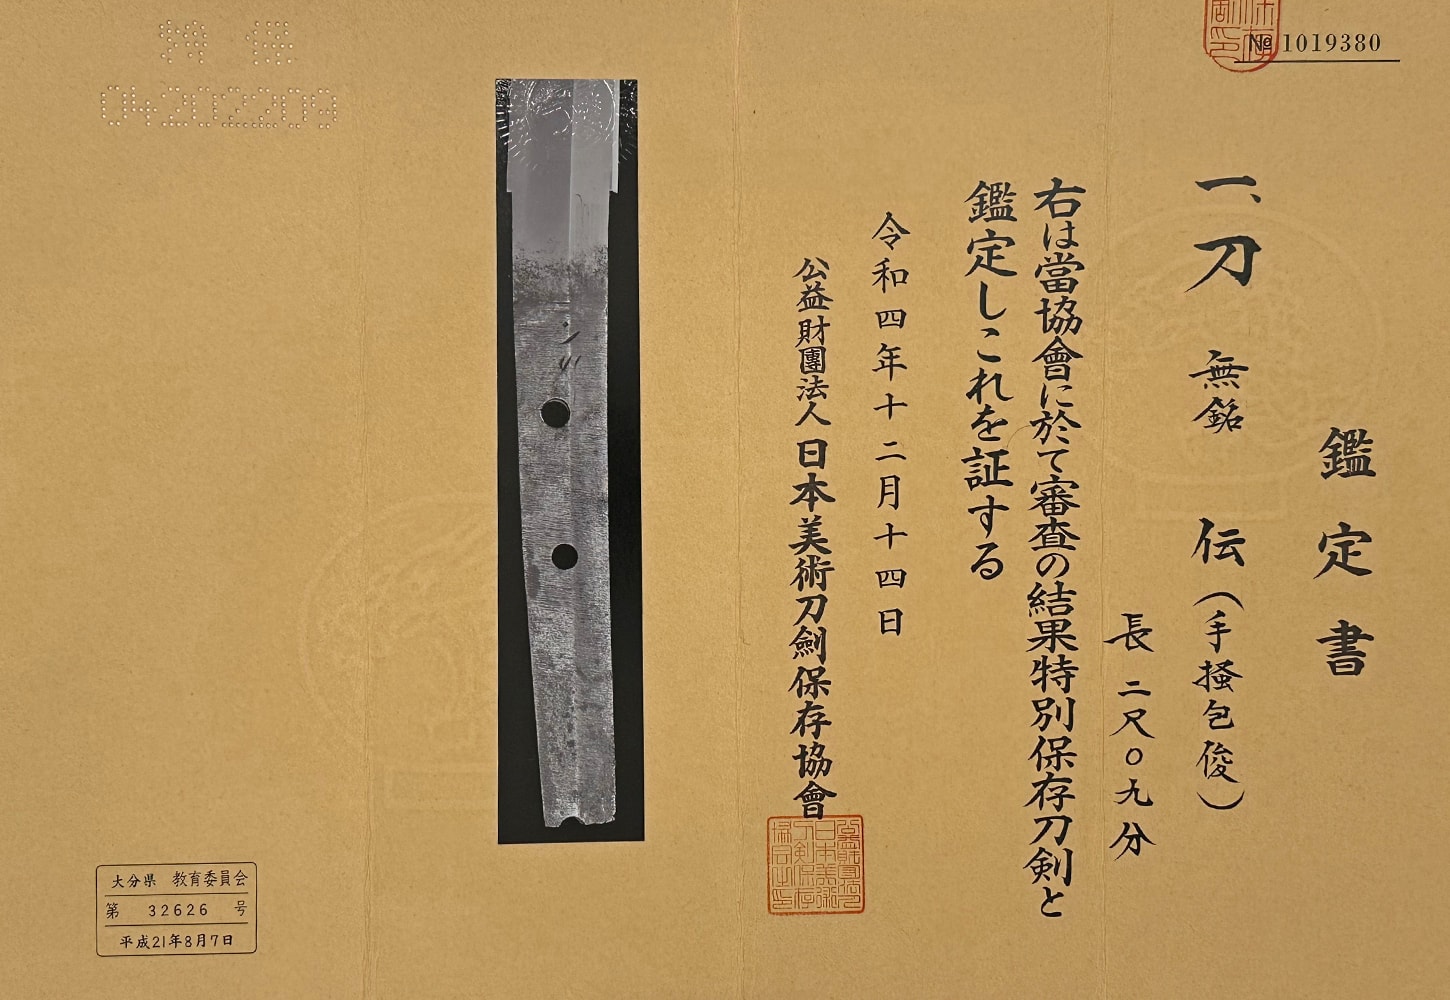 № 1019380
鑑定書
一、刀 無銘 伝(手掻包俊)
長 二尺〇九分
右は當協會に於て審査の結果特別保存刀剣と
鑑定しこれを証する
令和四年十二月十四日
公益財團法人 日本美術刀劍保存協會
特保
04202209
大分県 教育委員会
第 32626 号
平成21年8月7日